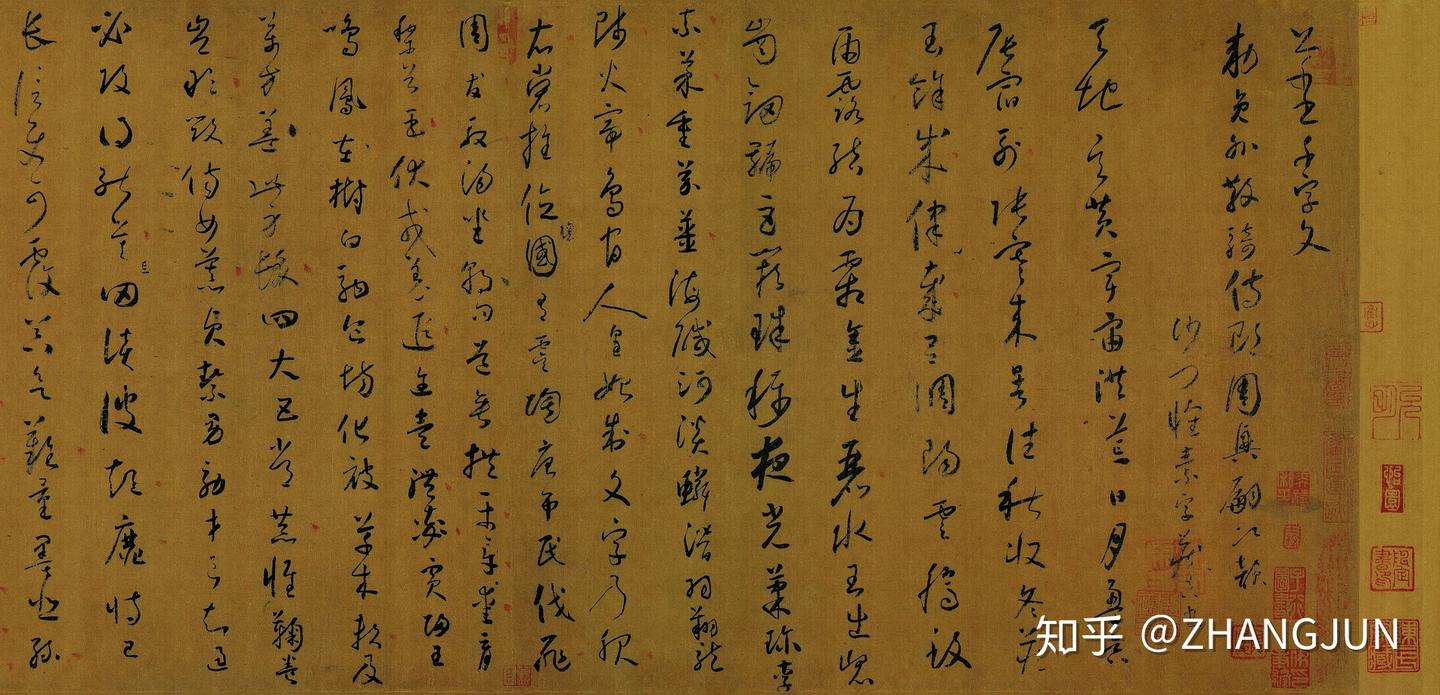 草書千字文
勅員外散騎侍郎周興嗣次韻
沙門懷素字藏真書
天地玄黃宇宙洪荒日月盈昃
辰宿列張寒來暑往秋收冬藏
閏餘成律歲呂調陽雲騰致
雨露結為霜金生麗水玉出崐
崗劍號巨闕珠稱夜光菓珍李
柰菜重芥薑海鹹河淡鱗潛羽翔龍
師火帝鳥官人皇始制文字乃服
衣裳推位讓國有虞陶唐弔民伐罪
周發殷湯坐朝問道垂拱平章愛育
黎首臣伏戎羌遐迩壹體率賓歸王
鳴鳳在樹白駒食場化被草木賴及
萬方蓋此身髮四大五常恭惟鞠養
豈敢毀傷女慕貞絜男效才良知過
必改得能莫忘罔談彼短靡恃己
長信使可覆器欲難量墨悲絲
知乎 @ZHANGJUN